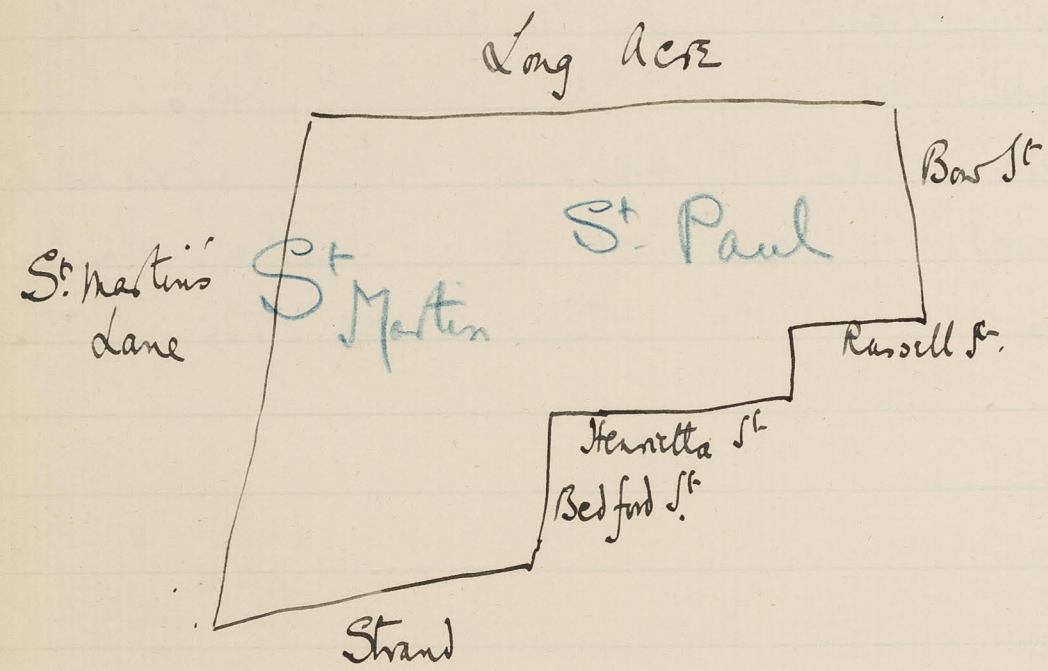 Long Acre
Bow St
St. Paul
St. Martin's
Lane
St
Martin
Russell St.
Henrietta St
Bedford St.
Strand